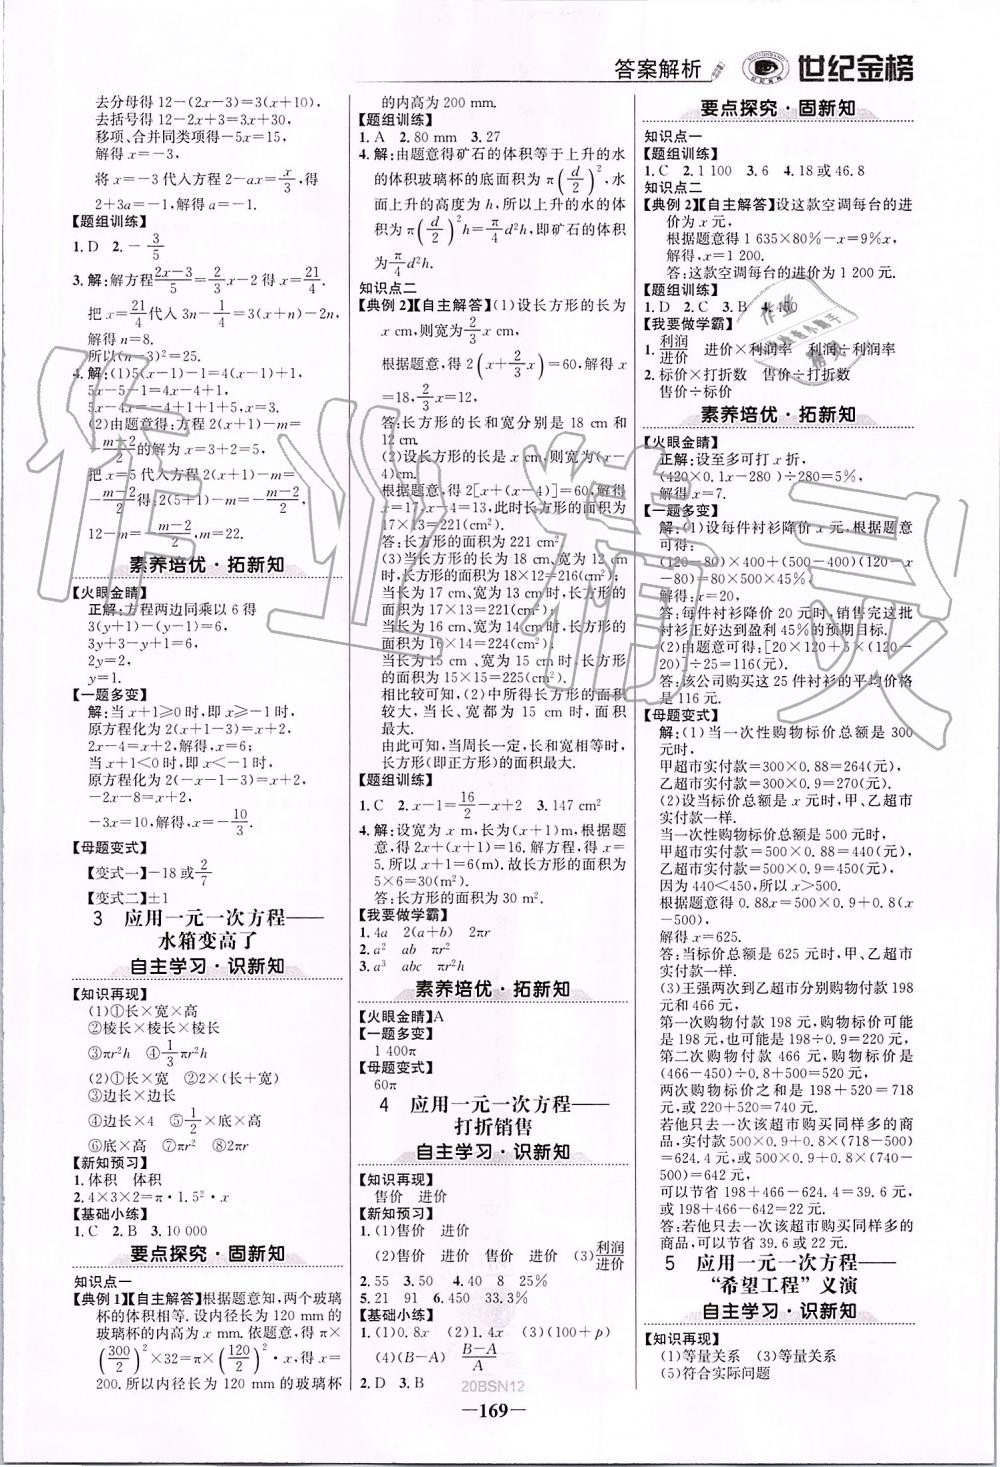 答案解析 世纪金榜
去分母得 12-(2x-3)=3(x+10),
去括号得 12-2x+3=3x+30,
移项、合并同类项得-5x=15,
解得 x=-3,
将 x=-3 代入方程 2-a=x/3,得
2+3a=-1,解得 a=-1.
【题组训练】
1.D 2.-3/5
3.解:解方程(2x-3)/5=2/3x-2 得 x=21/4.
把 x=21/4代入 3n-1/4=3(x+n)-2n,
解得 n=8.
所以(n-3)²=25.
4.解:(1)5(x-1)-1=4(x-1)+1,
5x-5-1=4x-4+1,
5x-4x=-4+1+1+5,x=3.
(2)由题意得:方程 2(x+1)-m=
-(m-2)/2的解为 x=3+2=5,
把 x=5 代入方程 2(x+1)-m=
-(m-2)/2得:2(5+1)-m=-(m-2)/2,
12-m=-(m-2)/2,m=22.
素养培优·拓新知
【火眼金睛】
正解:方程两边同乘以 6 得
3(y+1)-(y-1)=6,
3y+3-y+1=6,
2y=2,
y=1.
【一题多变】
解:当 x+1≥0 时,即 x≥-1 时,
原方程化为 2(x+1-3)=x+2,
2x-4=x+2,解得,x=6;
当 x+1<0 时,即 x<-1 时,
原方程化为 2(-x-1-3)=x+2,
-2x-8=x+2,
-3x=10,解得,x=-10/3.
【母题变式】
【变式一】-18 或2/7
【变式二】±1
3 应用一元一次方程——
水箱变高了
自主学习·识新知
【知识再现】
(1)①长×宽×高
②棱长×棱长×棱长
③πr²h ④1/3πr²h
(2)①长×宽 ②2×(长+宽)
③边长×边长
④边长×4 ⑤1/2×底×高
⑥底×高 ⑦πr² ⑧2πr
【新知预习】
1.体积 体积
2.4×3×2=π·1.5²·x
【基础小练】
1.C 2.B 3.10 000
要点探究·固新知
知识点一
【典例 1】【自主解答】根据题意知,两个玻璃
杯的体积相等.设内径长为 120 mm 的
玻璃杯的内高为 x mm.依题意,得 π×
(300/2)²×32=π×(120/2)²·x,得 x=
200.所以内径长为 120 mm 的玻璃杯
的内高为 200 mm.
【题组训练】
1.A 2.80 mm 3.27
4.解:由题意得矿石的体积等于上升的水
的体积玻璃杯的底面积为 π(d/2)²,水
面上升的高度为 h,所以上升的水的体
积为 π(d/2)²h=π/4d²h,即矿石的体积
为π/4d²h.
知识点二
【典例 2】【自主解答】(1)设长方形的长为
x cm,则宽为2/3x cm.
根据题意,得 2(x+2/3x)=60,解得 x
=18,2/3x=12,
答:长方形的长和宽分别是 18 cm 和
12 cm.
(2)设长方形的长是 x cm,则宽为(x-
4)cm.
根据题意,得 2[x+(x-4)]=60,解得
x=17,x-4=13,此时长方形的面积为
17×13=221(cm²).
答:长方形的面积为 221 cm²
(3)当长方形的长为 18 cm、宽为 12 cm
时,长方形的面积为 18×12=216(cm²)
当长为 17 cm、宽为 13 cm 时,长方形
的面积为 17×13=221(cm²)
当长为 16 cm、宽为 14 cm 时,长方形
的面积为 16×14=224(cm²)
当长为 15 cm、宽为 15 cm 时,长方形
的面积为 15×15=225(cm²)
相比较可知,(2)中所得长方形的面积
较大,当长、宽都为 15 cm 时,面积
最大.
由此可知,当周长一定,长和宽相等时,
长方形(即正方形)的面积最大.
【题组训练】
1.C 2.x-1=16/2-x+2 3.147 cm²
4.解:设宽为 x m,长为(x+1)m,根据题
意,得 2x+(x+1)=16.解方程,得 x=
5.所以 x+1=6(m).故长方形的面积为
5×6=30(m²).
答:长方形的面积为 30 m².
【我要做学霸】
1.4a 2(a+b) 2πr
2.a² ab πr²
3.a³ abc πr²h
素养培优·拓新知
【火眼金睛】A
【一题多变】
1 400π
【母题变式】
60π
4 应用一元一次方程——
打折销售
自主学习·识新知
【知识再现】
售价 进价
【新知预习】
1.(1)售价 进价
(2)售价 进价 售价 进价 (3)利润/进价
2.55 3.50 4.40 8 25%
5.21 91 6.450 33.3%
【基础小练】
1.(1)0.8x (2)1.4x (3)(100+p)
(4)(B-A) (B-A)/A
2.D 3.B
要点探究·固新知
知识点一
【题组训练】
1.C 2.1 100 3.6 4.18 或 46.8
知识点二
【典例 2】【自主解答】设这款空调每台的进
价为 x 元,
根据题意得 1 635×80%-x=9%x,
解得:x=1 200.
答:这款空调每台的进价为 1 200 元.
【题组训练】
1.D 2.C 3.B 4.450
【我要做学霸】
1.利润/进价 进价×利润率 利润÷利润率
2.标价×打折数 售价÷打折数
售价÷标价
素养培优·拓新知
【火眼金睛】
正解:设至多可打 x 折,
(420×0.1x-280)÷280=5%,
解得 x=7.
【一题多变】
解:(1)设每件衬衫降价 x 元,根据题意
可得:
(120-80)×400+(500-400)(120-x
-80)=80×500×45%
解得:x=20,
答:每件衬衫降价 20 元时,销售完这批
衬衫正好达到盈利 45%的预期目标.
(2)由题意可得:[20×120+5×(120-
20)]÷25=116(元).
答:该公司购买这 25 件衬衫的平均价格
是 116 元.
【母题变式】
解:(1)当一次性购物标价总额是 300
元时,
甲超市实付款=300×0.88=264(元),
乙超市实付款=300×0.9=270(元).
(2)设当标价总额是 x 元时,甲、乙超市
实付款一样.
当一次性购物标价总额是 500 元时,
甲超市实付款=500×0.88=440(元),
乙超市实付款=500×0.9=450(元),
因为 440<450,所以 x>500.
根据题意得 0.88x=500×0.9+0.8(x
-500),
解得 x=625.
答:当标价总额是 625 元时,甲、乙超市
实付款一样.
(3)王强两次到乙超市分别购物付款 198
元和 466 元,
第一次购物付款 198 元,购物标价可能
是 198 元,也可能是 198÷0.9=220 元,
第二次购物付款 466 元,购物标价是
(466-450)÷0.8+500=520 元,
两次购物标价之和是 198+520=718
元,或 220+520=740 元.
若他只去一次该超市购买同样多的商
品,实付款 500×0.9+0.8×(718-500)
=624.4 元,或 500×0.9+0.8×(740-
500)=642 元,
可以节省 198+466-624.4=39.6 元,
或 198+466-642=22 元.
答:若他只去一次该超市购买同样多的
商品,可以节省 39.6 或 22 元.
5 应用一元一次方程——
“希望工程”义演
自主学习·识新知
【知识再现】
(1)等量关系 (3)等量关系
(5)符合实际问题
20BSN12
—169—
作业精灵